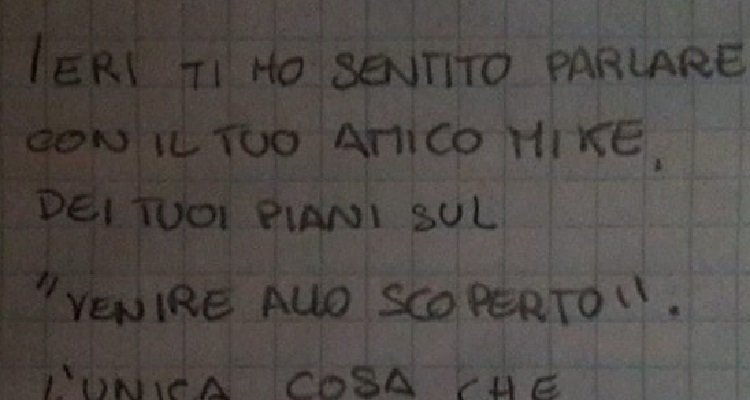 IERI TI HO SENTITO PARLARE
CON IL TUO AMICO MIKE,
DEI TUOI PIANI SUL
"VENIRE ALLO SCOPERTO".
L'UNICA COSA CHE